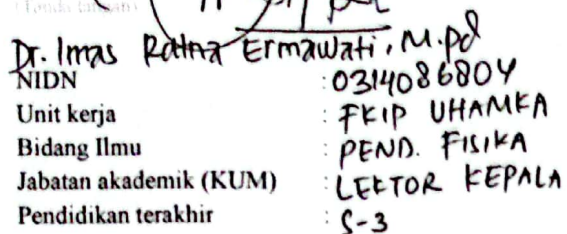 (Tanda tangan)
Dr. Imas Ratna Ermawati, M.pd
NIDN : 0314086804
Unit kerja : FKIP UHAMKA
Bidang Ilmu : PEND. FISIKA
Jabatan akademik (KUM) : LEKTOR KEPALA
Pendidikan terakhir : S-3